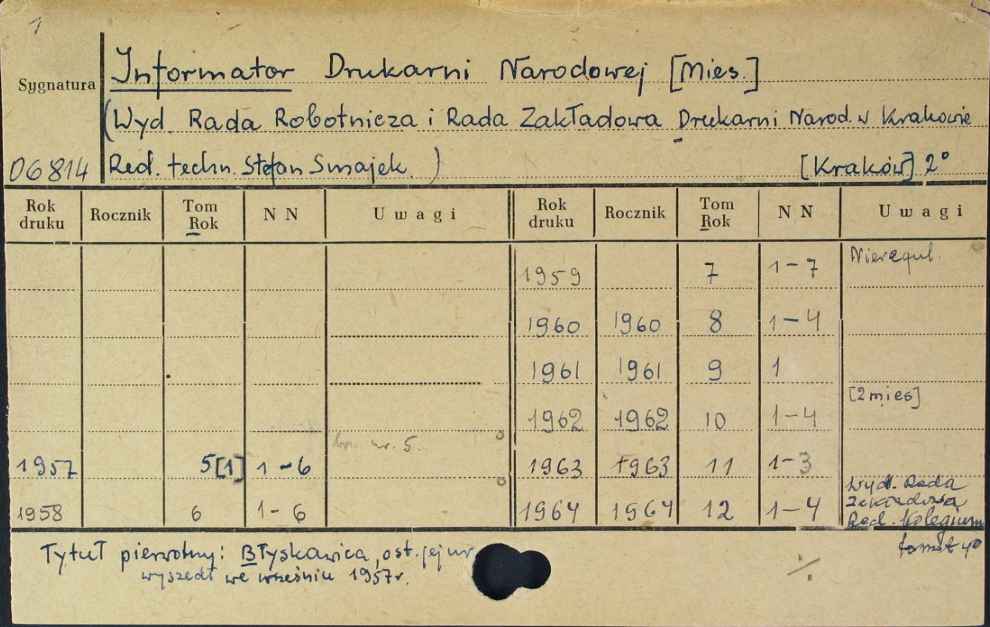 1
Sygnatura
Informator Drukarni Narodowej [Mies.]
(Wyd. Rada Robotnicza i Rada Zakładowa Drukarni Narod. w Krakowie
06814
Red. techn. Stefan Smajek.)
[Kraków] 2°
Rok druku Rocznik Tom Rok N N Uwagi Rok druku Rocznik Tom Rok N N Uwagi
1959 7 1-7 Nieregul.
1960 1960 8 1-4
1961 1961 9 1
1962 1962 10 1-4 [2mies]
nr. 5.
1957 5[1] 1-6 1963 1963 11 1-3
1958 6 1-6 1964 1964 12 1-4 Wyd. Rada
Zakładowa
Red. Kolegium
format 4°
Tytuł pierwotny: Błyskawica, ost. jej nr
wyszedł we wrześniu 1957r.